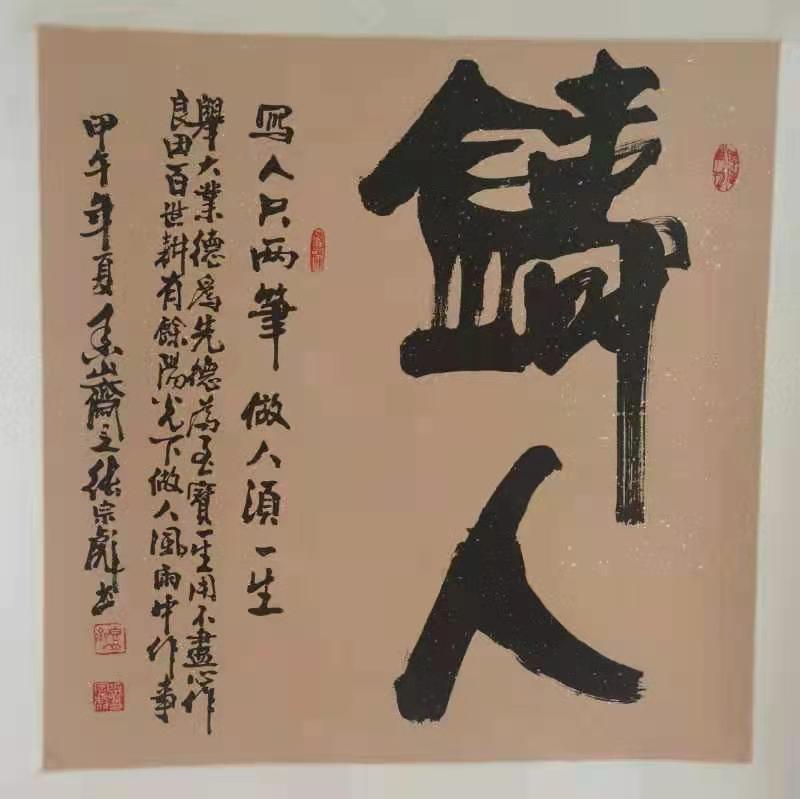 鑄人
寫人只两筆 做人須一生
舉大業德爲先德為至寶一生用不盡心作
良田百世耕有餘陽光下做人風雨中作事
甲午年夏 山齋主張宗彪書